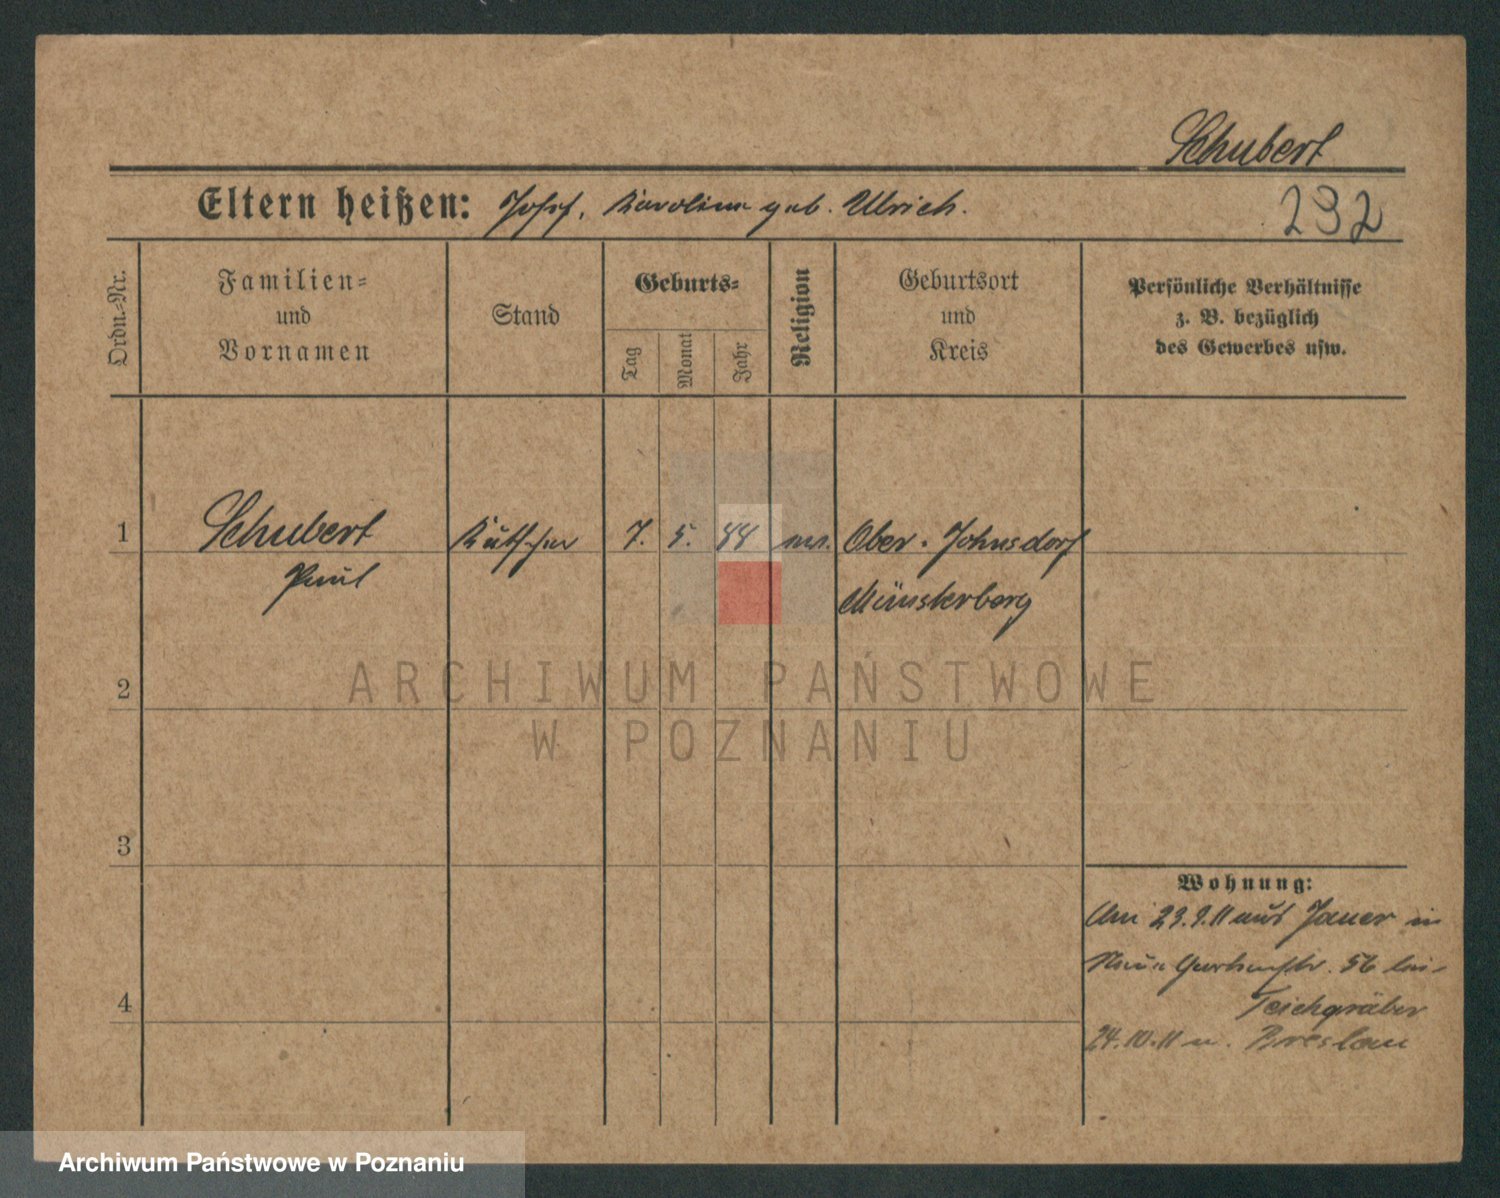 Schubert
Eltern heißen: Josef, Karoline geb. Ulrich.
232
Ordn.-Nr.
Familien-
und
Vornamen
Stand
Geburts-
Tag
Monat
Jahr
Religion
Geburtsort
und
Kreis
Persönliche Verhältnisse
z. B. bezüglich
des Gewerbes usw.
1
Schubert
Paul
Kutscher
7. 5. 44
Ober-Johnsdorf
Münsterberg
2
3
4
Wohnung:
Am 23.9.11 aus Jauer in
Neue Gartenstr. 56 bei
Teichgräber
24.10.11 n. Breslau
ARCHIWUM PAŃSTWOWE
W POZNANIU
Archiwum Państwowe w Poznaniu